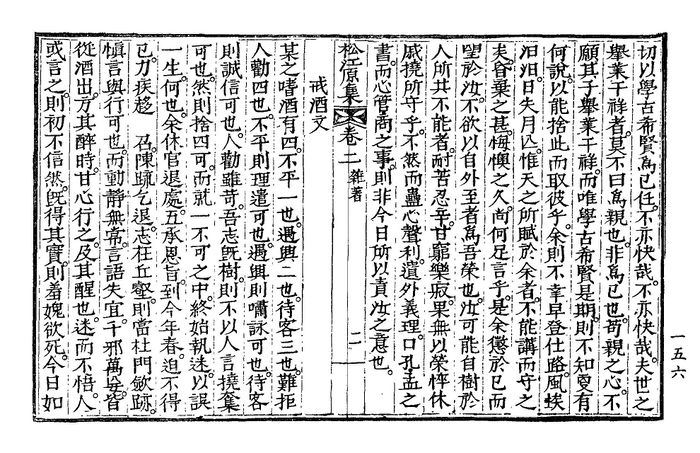 切以學古希賢爲己任不亦快哉不亦快哉夫世之
舉業干祥者莫不曰爲親也非爲己也苟親之心不
願其子舉業干祥而唯學古希賢是期則不知更有
何說以能捨此而取彼乎余則不幸早登仕路風埃
汨汨日失月亾惟天之所賦於余者不能講而守之
棄之甚悔懊之久尚何足言乎是余懲於己而
望於汝不欲以自外至者爲吾榮也汝可能自樹於
人所共不能者耐苦忍辛甘窮樂寂果無以榮悴休
戚撓所守乎不然而蠱心聲利遺外義理口孔孟之
書而心管商之事則非今日所以責汝之意也
松江原集 卷二 雜著 二
戒酒文
某之嗜酒有四不平一也遇興二也待客三也難拒
人勸四也不平則理遣可也遇興則嘯詠可也待客
則誠信可也人勸雖苛吾志旣樹則不以人言撓奪
可也然則捨四可而就一不可之中終始執迷以誤
一生何也余休官退處五承恩旨到今年春迫不得
已力疾趍 召陳疏乞退志在丘壑則當杜門斂跡
愼言與行可也而動靜無常言語失宜千邪萬妄皆
從酒出方其醉時甘心行之及其醒也迷而不悟人
或言之則初不信然旣得其實則羞媿欲死今日如
一五六